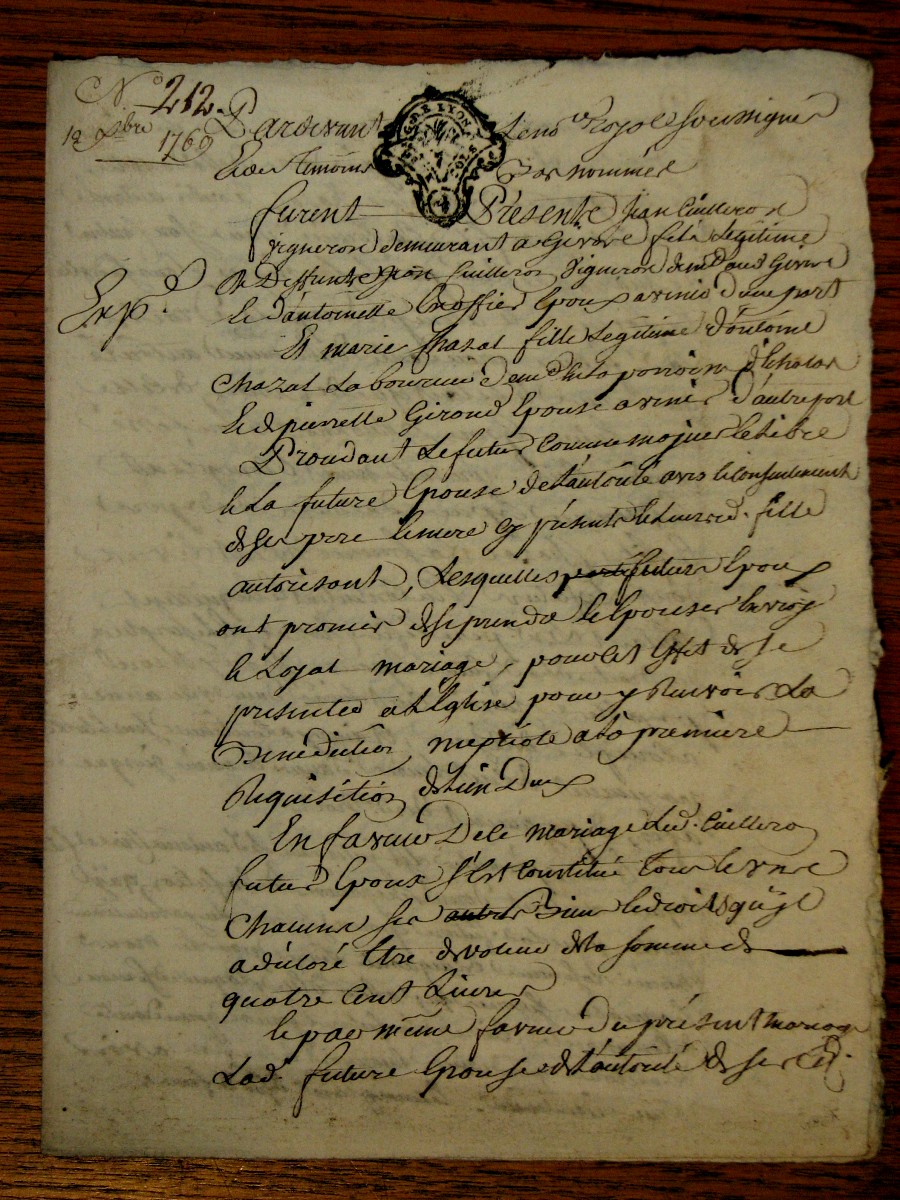 N.° 212.
12 9bre
1769
Pardevant Le no.re Royal soussigné
GÉN. DE LYON
Et des témoins Bas nommés
furent Présents Jean Cuilleron
vigneron demeurant a Givore fils Legitime
De Deffunts Jean Cuilleron vigneron dem.t aud Givore
Exp.d
et d'antoinette époux avenir d'une part
Et marie Chazal fille Legitime d'antoine
Chazal Laboureur dem.t en la parroisse d'Echalas
et de pierrette Giroud Epouse avenir d'autre part
Procedant Le futur comme majeur et Libre
et La future Epouse de L'autorité avis et consentement
de ses pere et mere cy présents et leurd. fille
autorisant, Lesquelles futurs Epoux
ont promis de se prendre et Epouser en vray
et Loyal mariage, pour cet Effet de se
presenter a L'Eglise pour y Recevoir La
Benediction nuptiale a la premiere
Requisition de L'un D'eux
En faveur De ce mariage Led. Cuilleron
futur Epoux s'est Constitué tous et un
Chacuns ses autres Biens et droits qu'il
a déclaré Etre de valeur de la somme de
quatre Cent Livres
et par même faveur du présent mariage
Lad. future Epouse de L'autorité de sesd.